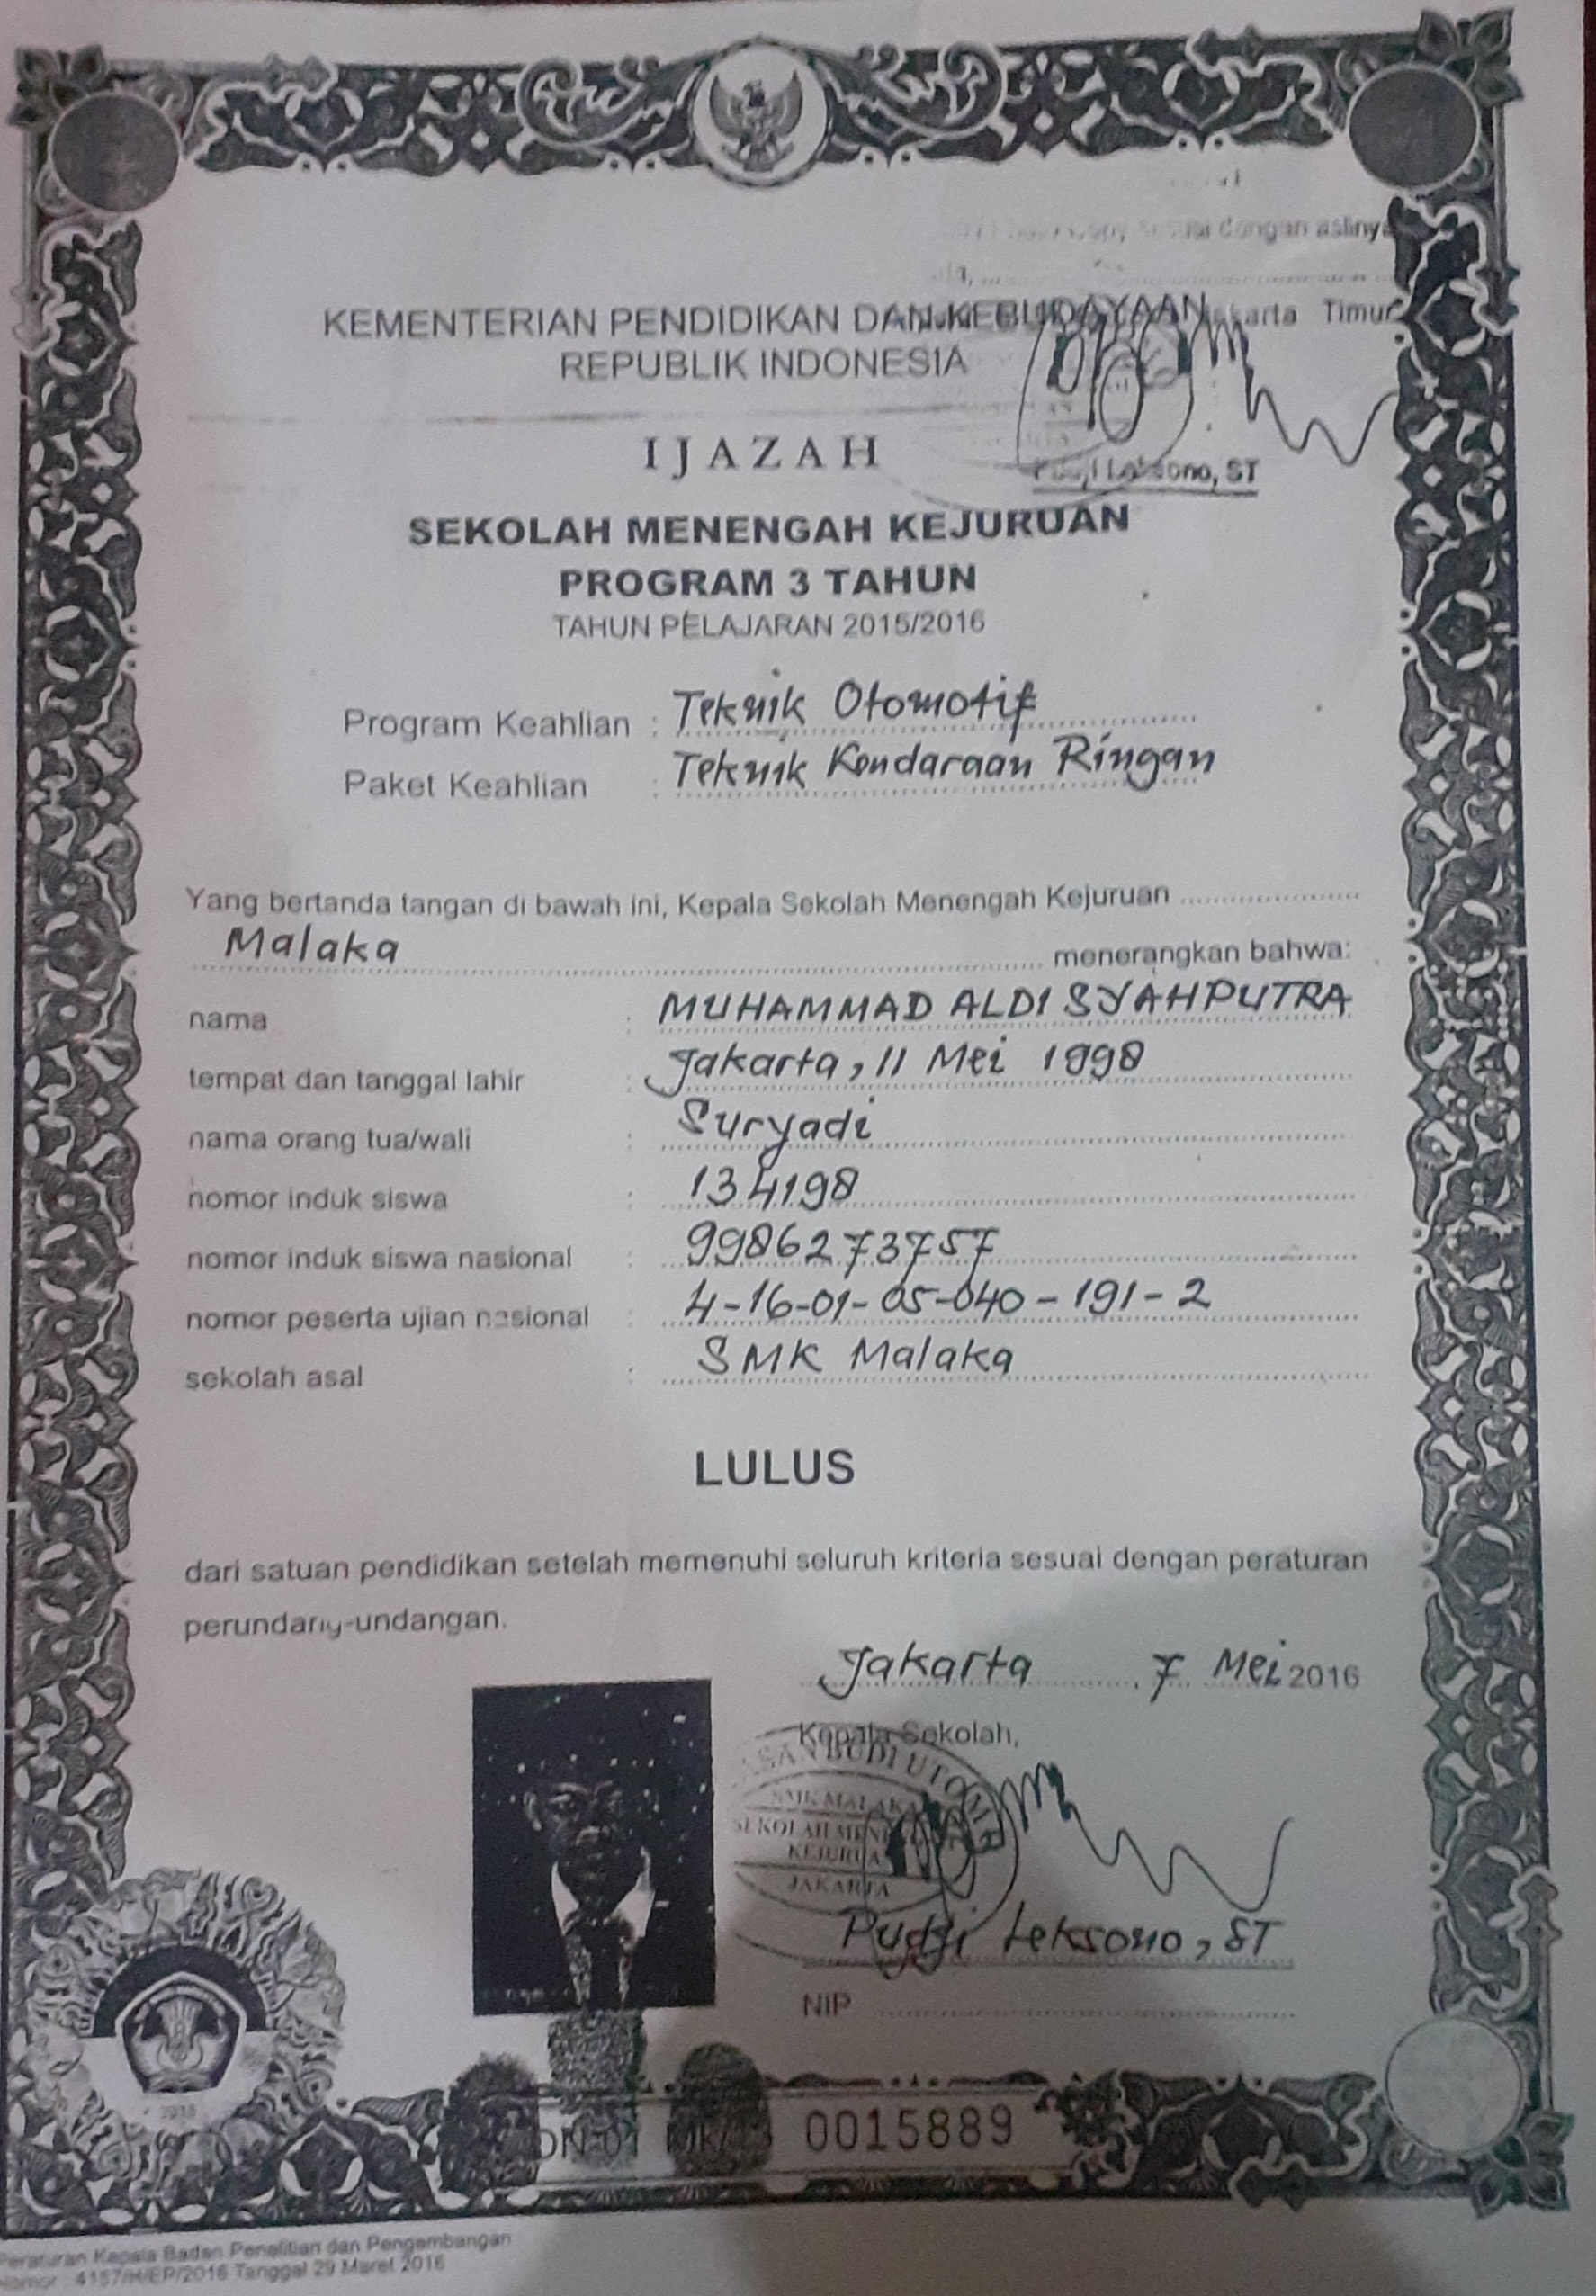 dengan aslinya
Jakarta Timur
KEMENTERIAN PENDIDIKAN DAN KEBUDAYAAN
REPUBLIK INDONESIA
IJAZAH
Leksono, ST
SEKOLAH MENENGAH KEJURUAN
PROGRAM 3 TAHUN
TAHUN PELAJARAN 2015/2016
Program Keahlian : Teknik Otomotif
Paket Keahlian : Teknik Kendaraan Ringan
Yang bertanda tangan di bawah ini, Kepala Sekolah Menengah Kejuruan
Malaka menerangkan bahwa:
nama : MUHAMMAD ALDI SYAHPUTRA
tempat dan tanggal lahir : Jakarta, 11 Mei 1998
nama orang tua/wali : Suryadi
nomor induk siswa : 134198
nomor induk siswa nasional : 9986273757
nomor peserta ujian nasional : 4-16-01-05-040-191-2
sekolah asal : SMK Malaka
LULUS
dari satuan pendidikan setelah memenuhi seluruh kriteria sesuai dengan peraturan
perundang-undangan.
Jakarta, 7 Mei 2016
Kepala Sekolah,
BUDI UTOMO
SMK MALAKA
SEKOLAH MENENGAH
KEJURUAN
JAKARTA
Pudji Leksono, ST
NIP
DN-01 Mk/ 0015889
Peraturan Kepala Badan Penelitian dan Pengembangan
Nomor : 4157/H/EP/2016 Tanggal 29 Maret 2016